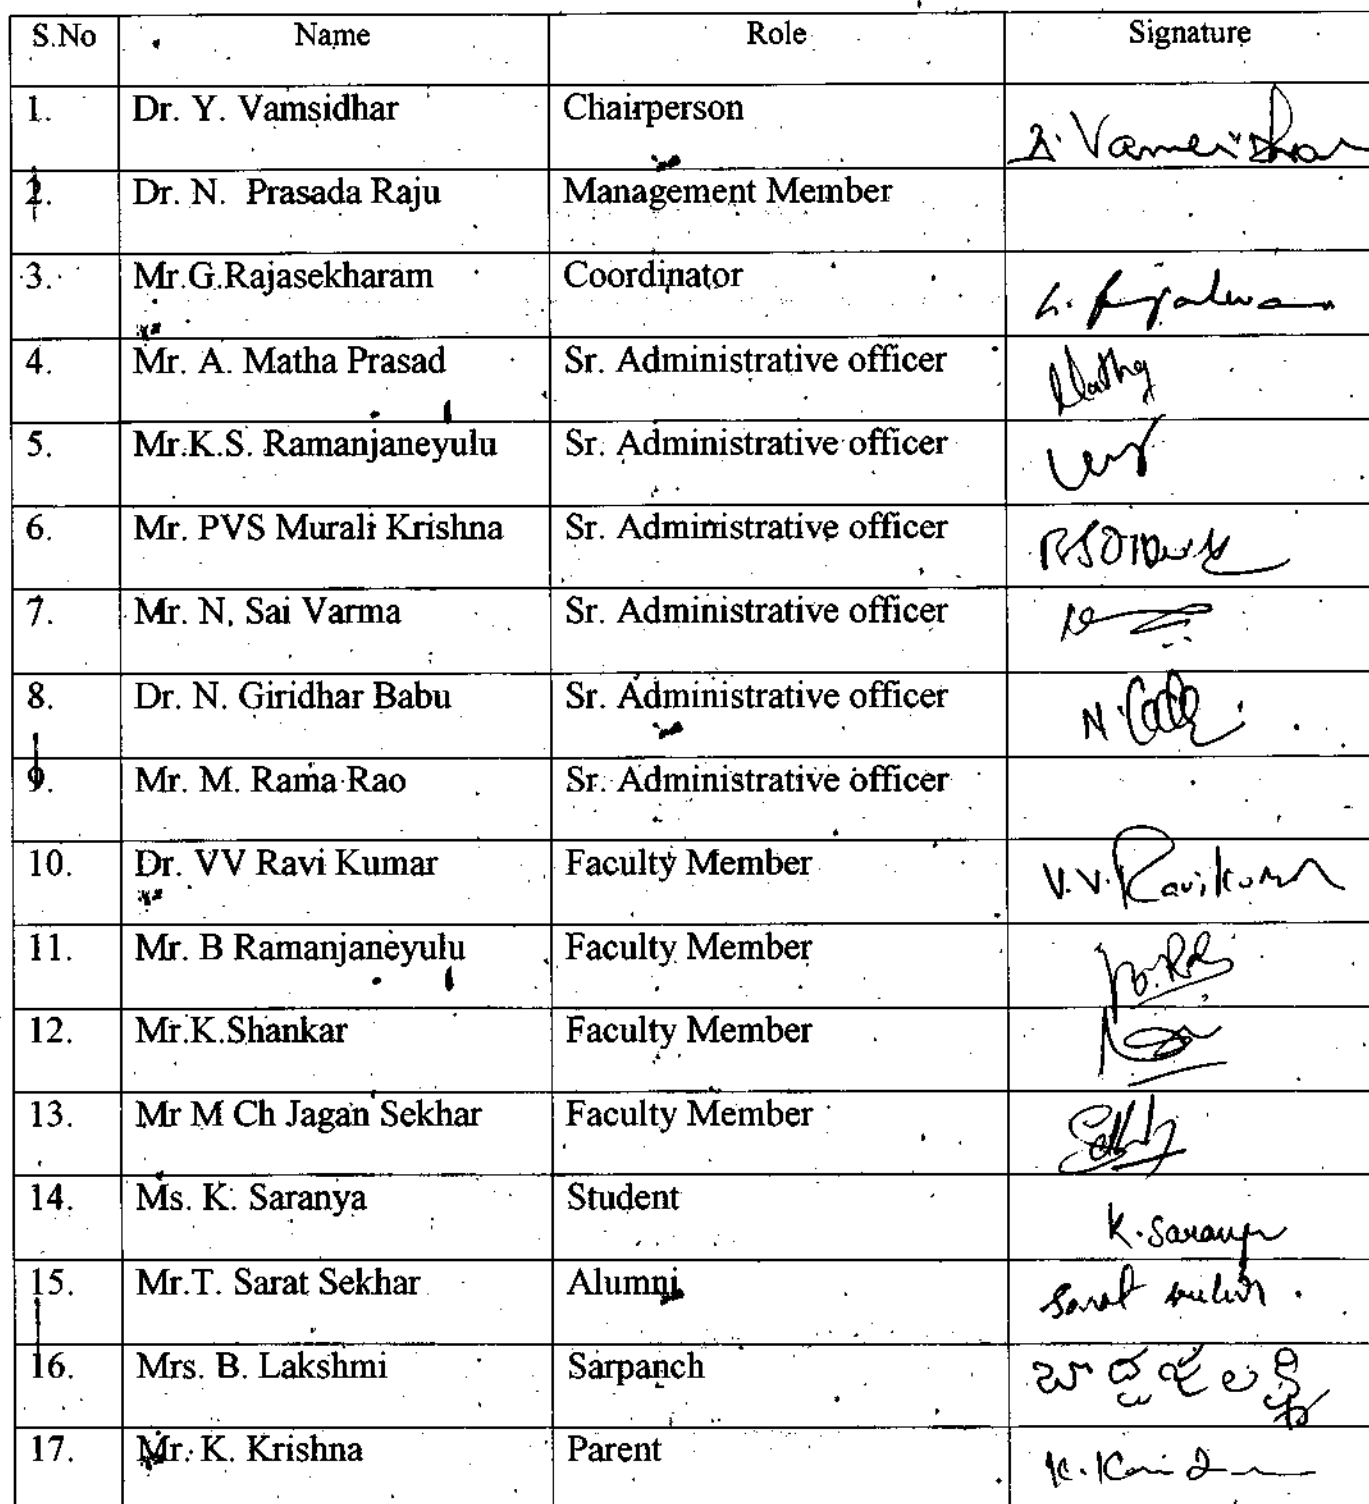 S.No Name Role Signature
1. Dr. Y. Vamsidhar Chairperson
2. Dr. N. Prasada Raju Management Member
3. Mr.G.Rajasekharam Coordinator
4. Mr. A. Matha Prasad Sr. Administrative officer
5. Mr.K.S. Ramanjaneyulu Sr. Administrative officer
6. Mr. PVS Murali Krishna Sr. Administrative officer
7. Mr. N. Sai Varma Sr. Administrative officer
8. Dr. N. Giridhar Babu Sr. Administrative officer
9. Mr. M. Rama Rao Sr. Administrative officer
10. Dr. VV Ravi Kumar Faculty Member V.V. Ravikumar
11. Mr. B Ramanjaneyulu Faculty Member
12. Mr.K.Shankar Faculty Member
13. Mr M Ch Jagan Sekhar Faculty Member
14. Ms. K. Saranya Student K. Saranya
15. Mr.T. Sarat Sekhar Alumni Sarat
16. Mrs. B. Lakshmi Sarpanch
17. Mr. K. Krishna Parent